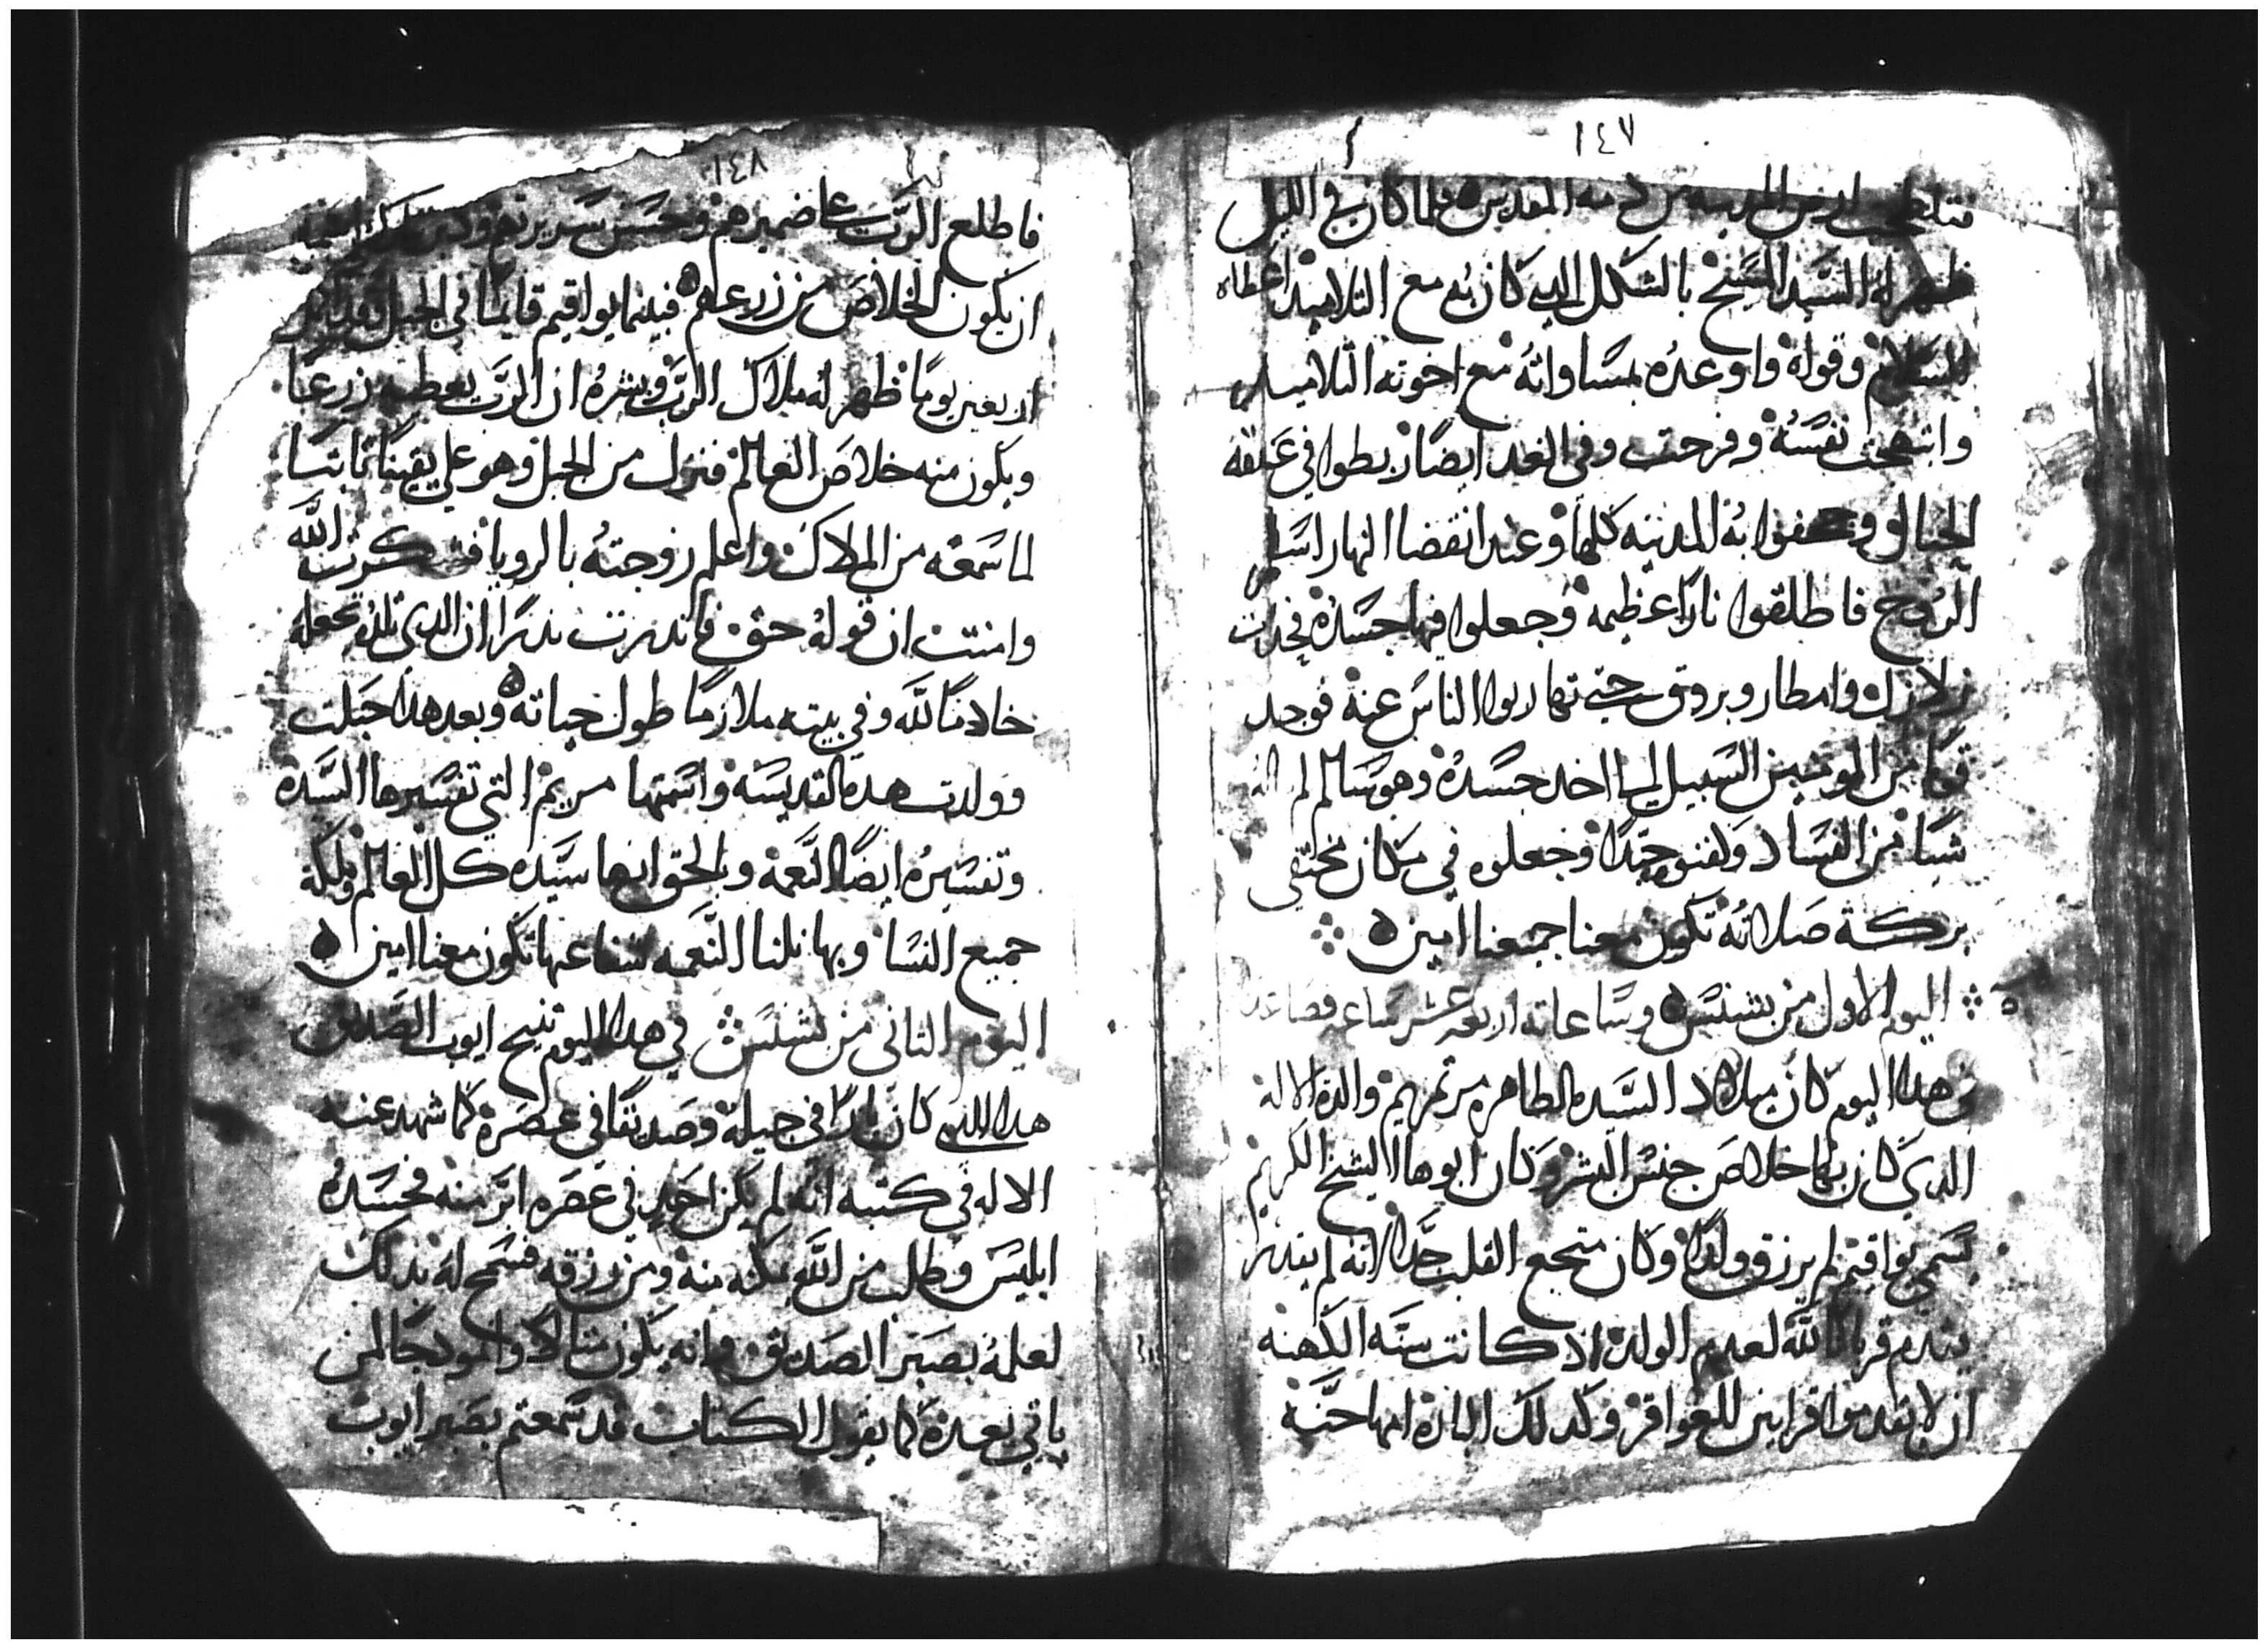 ١٤٧
فتلطخت ارض المدينه من دمه المقدس فلما كان في الليل
ظهر له السيد المسيح بالشكل الدي كان به مع التلاميد اعطاه
السلام وقواه واوعده بمساواته مع اخوته التلاميد
وابتهجت نفسه وفرحت وفي الغد ايضا ربطوا في عنقه
الحبال و به المدينه كلها وعند انقضا النهار اسلم
الروح فاطلقوا نارا عظيمه وجعلوا فيها جسده فحدت
زلازل وامطار وبروق حتي تهاربوا الناس عنه فوجد
قوما من المومنين السبيل الي اخد جسده وهو سالم لم
شيا من الفساد وكفنوه جيدا وجعلوه في مكان مختفي
بركة صلاته تكون معنا جميعنا امين
اليوم الاول من بشنس وساعاته اربعه عشر ساعه فصاعدا
في هدا اليوم كان ميلاد السيده الطاهره مرتمريم والدة الاله
الدي كان بها خلاص جنس البشر وكان ابوها الشيخ الكريم
يسمي يواقيم لم يرزق ولدا وكان متوجع القلب جدا لانه لم يقدر
يقدم قربانا لله لعدم الولد اد كانت سنه الكهنه
ان لا يقدموا قرابين للعواقر وكدلك البارة امها حنه
١٤٨
فاطلع الرب علي ضميرهم وحسن سريرتهم
ان يكون الخلاص من زرعهم فبينما يواقيم قايما في الجبل
اربعين يوما ظهر له ملاك الرب وبشره ان الرب يعطيه زرعا
ويكون منه خلاص العالم فنزل من الجبل وهو علي يقينا تابتا
لما سمعه من الملاك واعلم زوجته بالرويا فشكرت الله
وامنت ان قوله حق فاندرت ندرا ان الدي تلده يجعله
خادما لله وفي بيته ملازما طول حياته وبعد هدا حبلت
وولدت هده القديسه واسمتها مريم التي تفسيرها السيده
وتفسيره ايضا النعمه وبالحق انها سيده كل العالم وملكة
جميع النسا وبها نلنا النعمه شفاعتها تكون معنا امين
اليوم التاني من بشنس في هدا اليوم تنيح ايوب الصديق
هدا الدي كان بارا في جيله وصديقا في عصره كما شهد عنه
الاله في كتبه انه لم يكن احد في عصره ابر منه فحسده
ابليس وطلب من الله يمكنه منه ومن رزقه فسمح له بدلك
لعلمه بصبر الصديق وانه يكون متالا وانمودجا لمن
ياتي بعده كما يقول الكتاب قد سمعتم بصبر ايوب